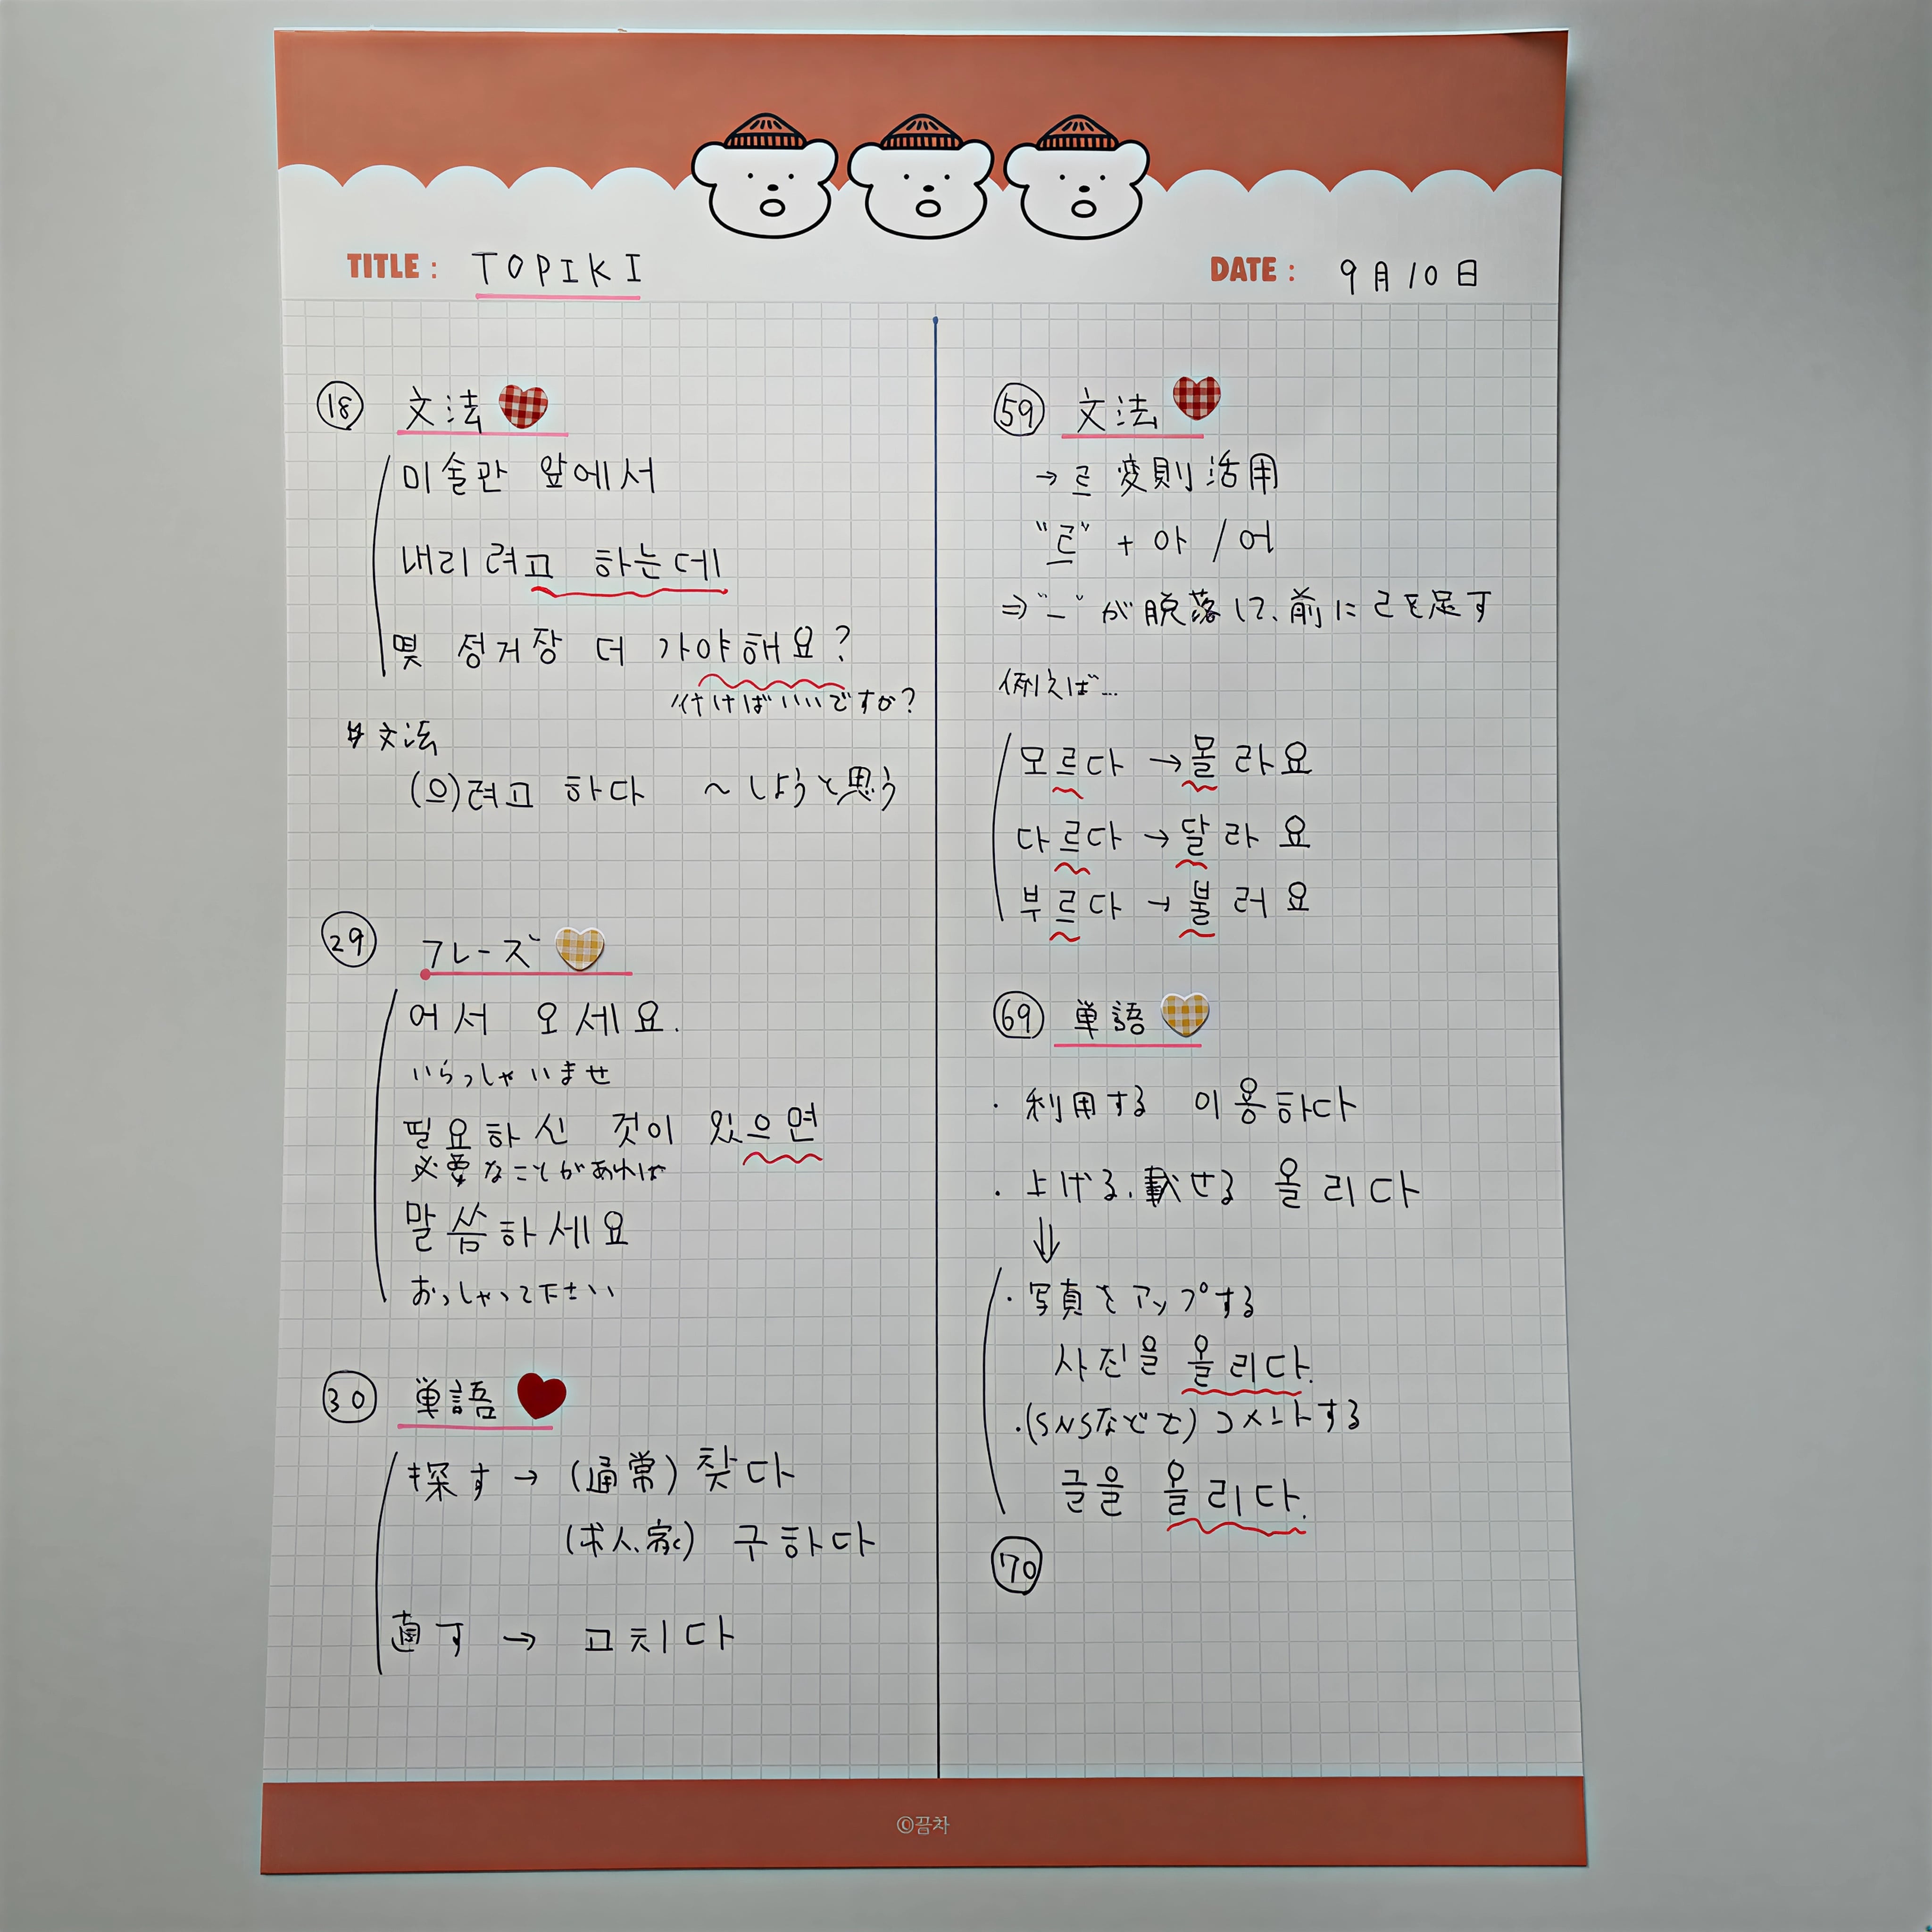 TITLE : TOPIK I
DATE : 9月10日
⑱ 文法
미술관 앞에서
내리려고 하는데
몇 정거장 더 가야해요?
行けばいいですか?
文法
(으)려고 하다 ~しようと思う
㉙ フレーズ
어서 오세요.
いらっしゃいませ
필요하신 것이 있으면
必要なことがあれば
말씀하세요
おっしゃって下さい
㉚ 単語
探す → (通常) 찾다
(求人、家) 구하다
直す → 고치다
59 文法
→ 르 変則活用
"르" + 아 / 어
⇒ "ㅡ" が脱落して、前に ㄹを足す
例えば...
모르다 → 몰라요
다르다 → 달라요
부르다 → 불러요
69 単語
・利用する 이용하다
・上げる、載せる 올리다
⇓
・写真をアップする
사진을 올리다.
・(SNSなどで) コメントする
글을 올리다.
70
©끔차